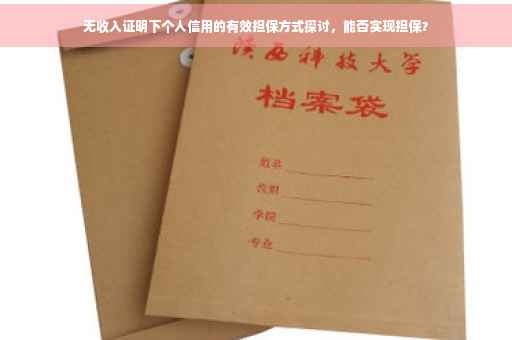 无收入证明下个人信用的有效担保方式探讨，能否实现担保？
陕西科技大学
档案袋
姓名
学院
专业